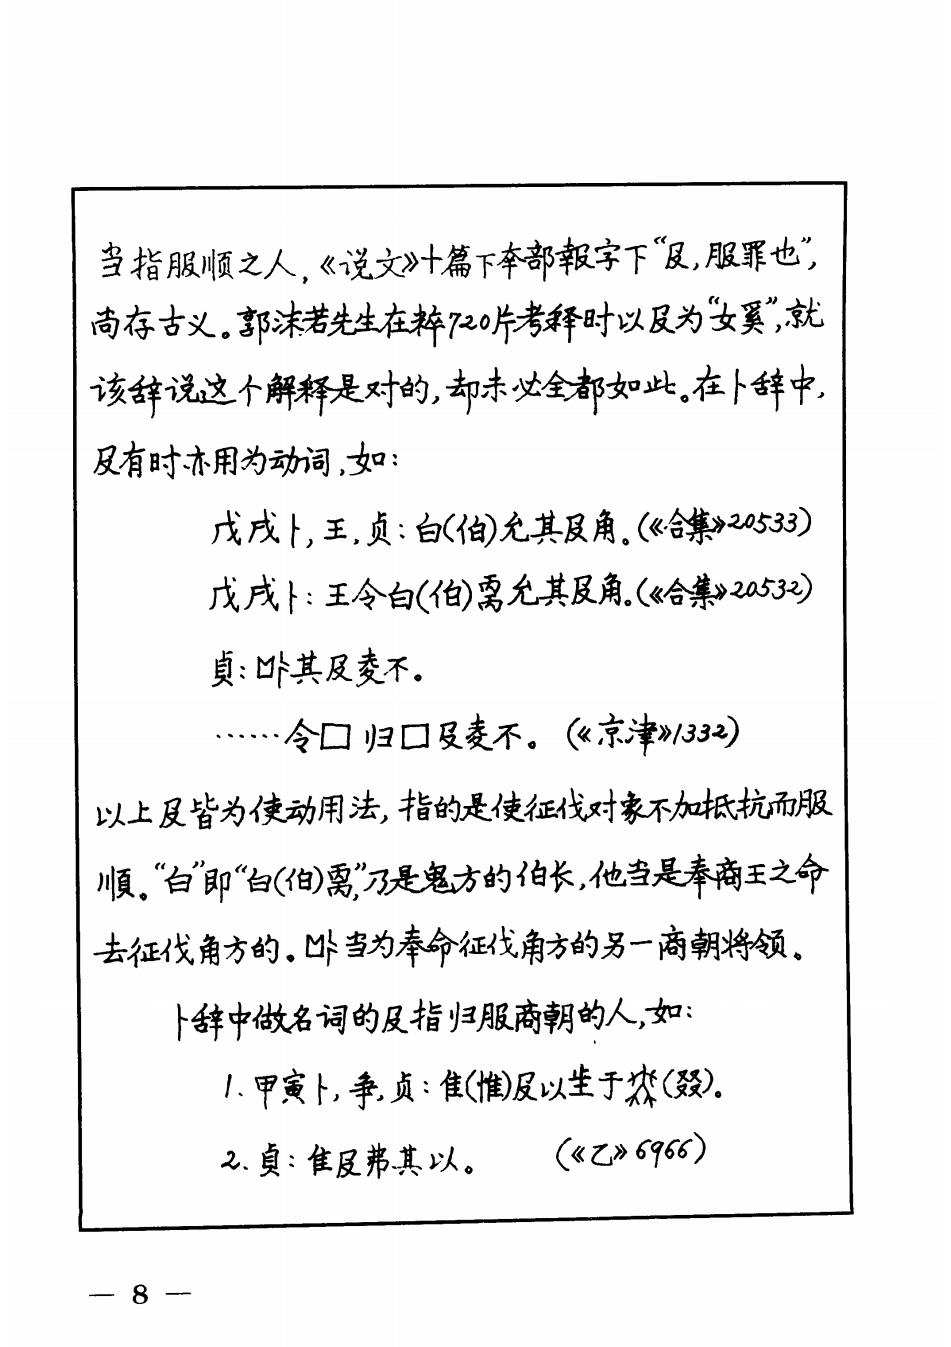 当指服顺之人,《说文》十篇下㚔部報字下“𠬝,服罪也”,
尚存古义。郭沫若先生在粹720片考释时以𠬝为“女奚”,就
该辞说这个解释是对的,却未必全都如此。在卜辞中,
𠬝有时亦用为动词,如:
戊戌卜,王,贞:白(伯)允其𠬝角。(《合集》20533)
戊戌卜:王令白(伯)𩂣允其𠬝角。(《合集》20532)
貞:其𠬝夌不。
……令□归□𠬝夌不。(《京津》1332)
以上𠬝皆为使动用法,指的是使征伐对象不加抵抗而服
順。“白”即“白(伯)𩂣”,乃是鬼方的伯长,他当是奉商王之命
去征伐角方的。当为奉命征伐角方的另一商朝将领。
卜辞中做名词的𠬝指归服商朝的人,如:
1.甲寅卜,争,贞:隹(惟)𠬝以坐于(叕)。
2.貞:隹𠬝弗其以。 (《乙》6966)
— 8 —